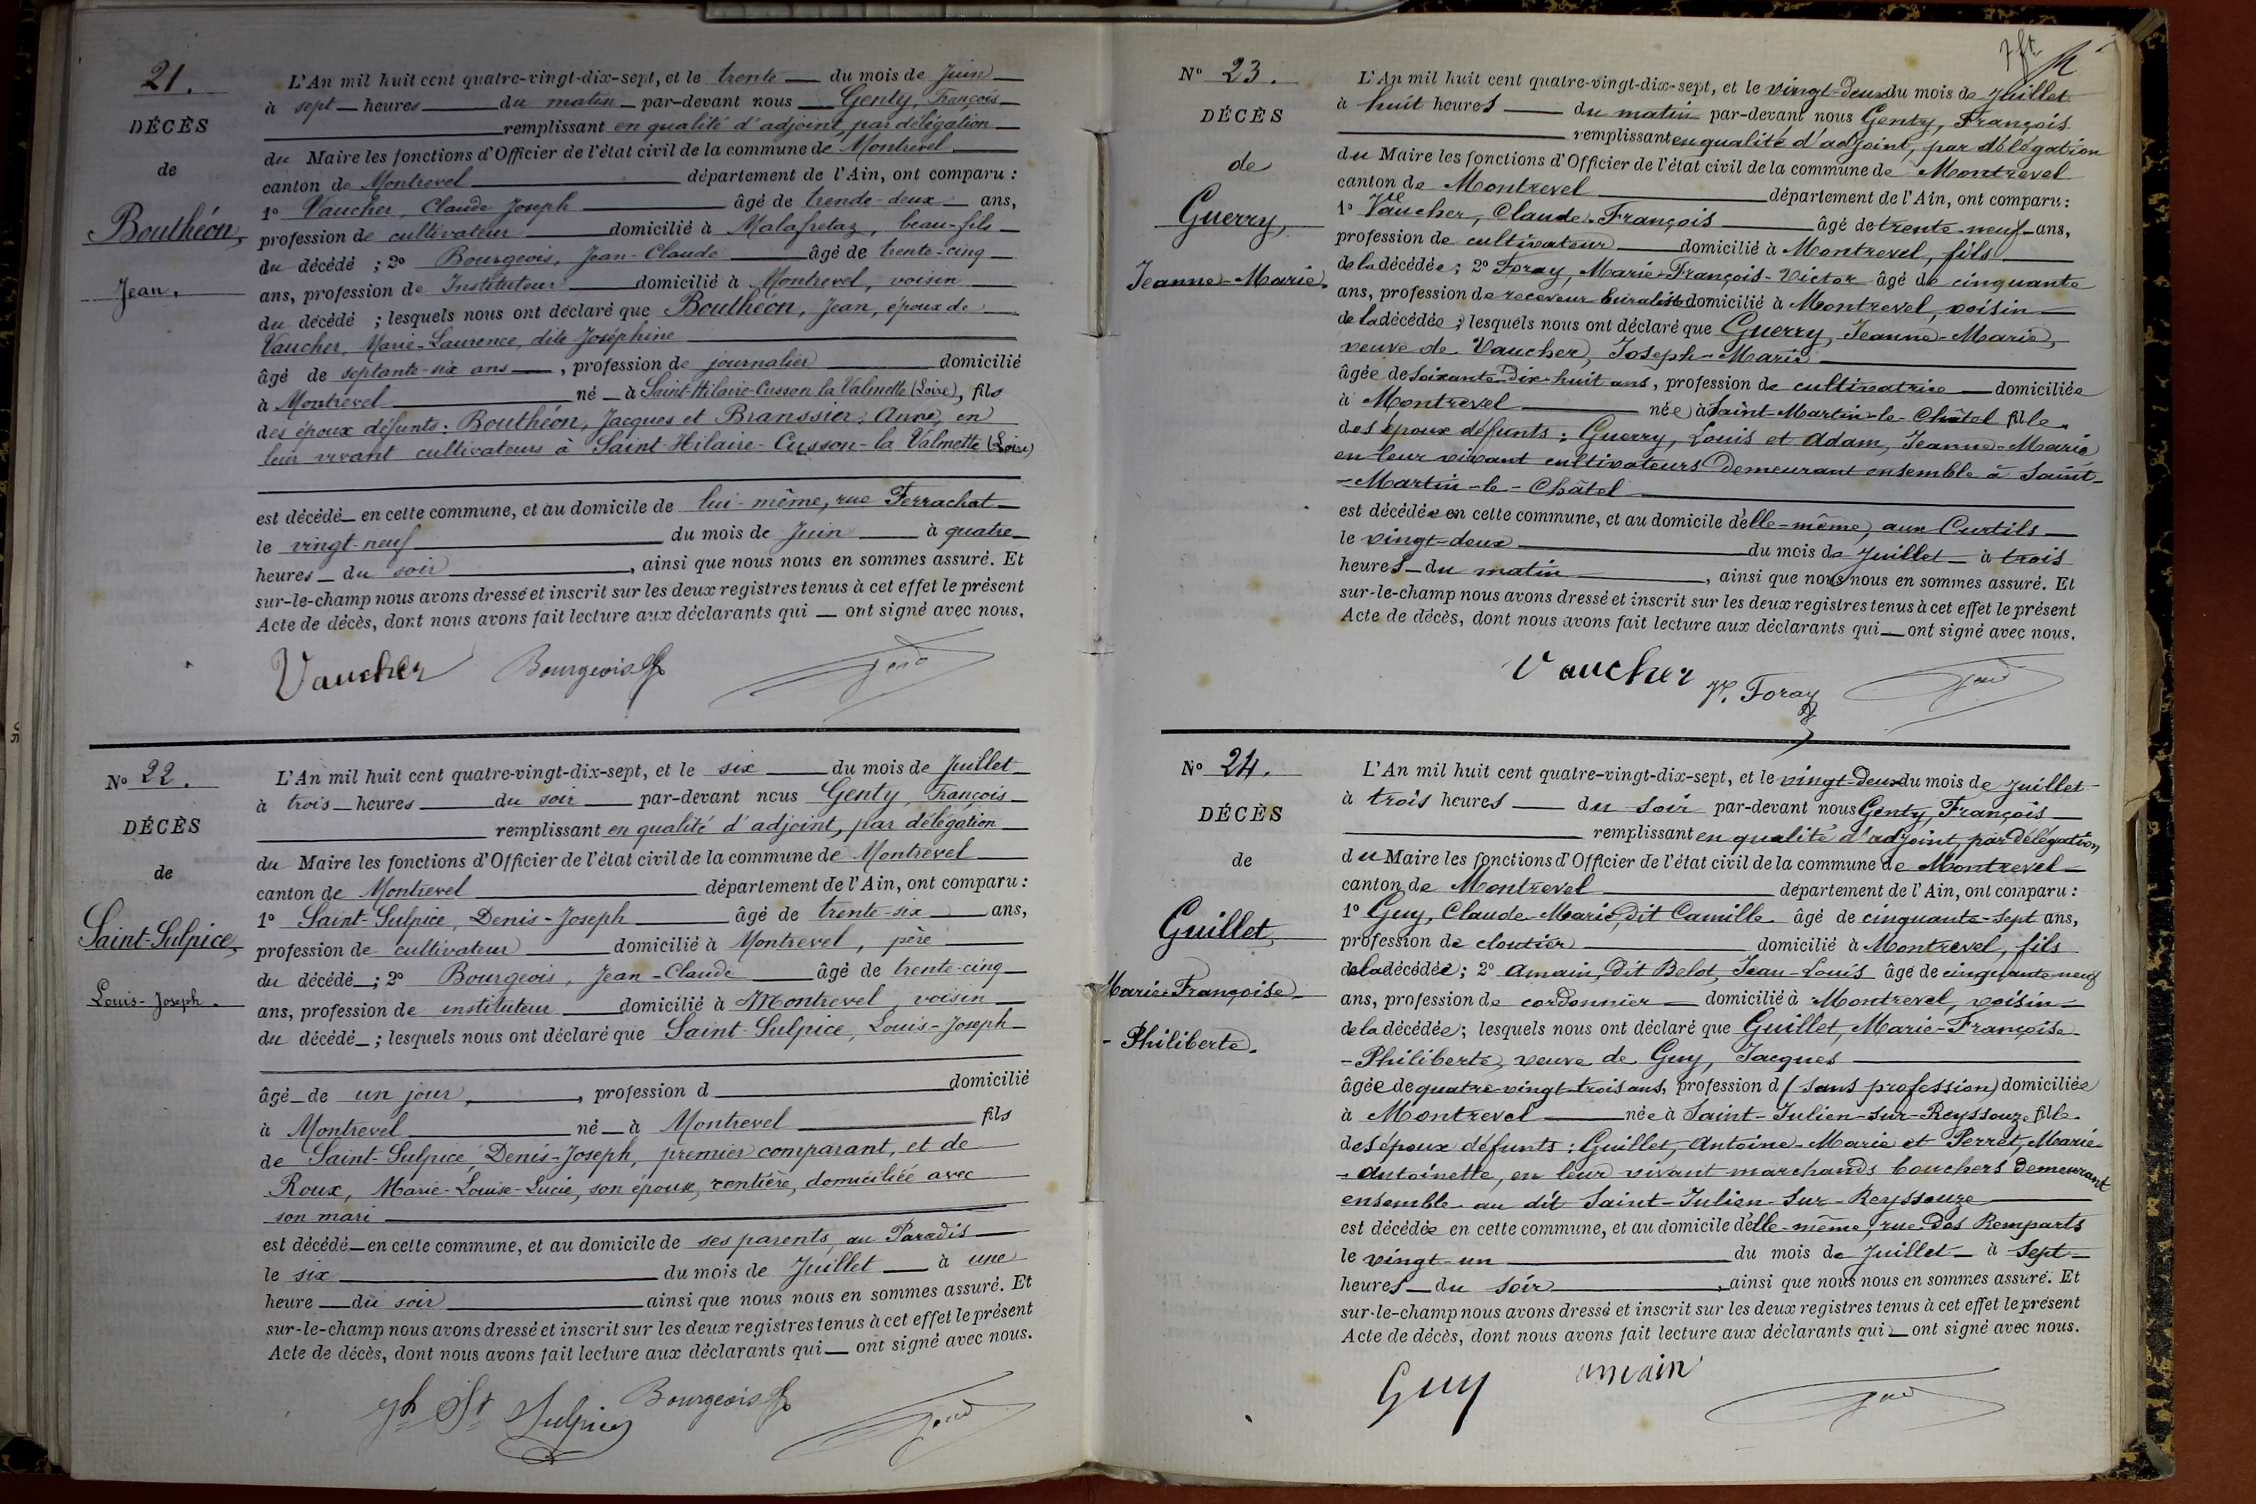 21.
DÉCÈS
de
Bouthéon,
Jean.
L'An mil huit cent quatre-vingt-dix-sept, et le trente du mois de Juin
à sept heures du matin par-devant nous Genty, François
remplissant en qualité d'adjoint, par délégation
du Maire les fonctions d'Officier de l'état civil de la commune de Montrevel
canton de Montrevel département de l'Ain, ont comparu :
1º Vaucher, Claude Joseph âgé de trente-deux ans,
profession de cultivateur domicilié à Malafretaz, beau-fils
du décédé ; 2º Bourgeois, Jean-Claude âgé de trente-cinq
ans, profession de Instituteur domicilié à Montrevel, voisin
du décédé ; lesquels nous ont déclaré que Bouthéon, Jean, époux de
Vaucher, Marie-Laurence, dite Joséphine
âgé de septante-six ans, profession de journalier domicilié
à Montrevel né à Saint-Hilaire-Cusson-la Valmette (Loire), fils
des époux défunts : Bouthéon, Jacques et Branssier, Anne, en
leur vivant cultivateurs à Saint-Hilaire-Cusson-la Valmette (Loire)
est décédé en cette commune, et au domicile de lui-même, rue Ferrachat
le vingt-neuf du mois de Juin à quatre
heures du soir, ainsi que nous nous en sommes assuré. Et
sur-le-champ nous avons dressé et inscrit sur les deux registres tenus à cet effet le présent
Acte de décès, dont nous avons fait lecture aux déclarants qui ont signé avec nous.
Vaucher Bourgeois
Nº 22.
DÉCÈS
de
Saint-Sulpice,
Louis-Joseph.
L'An mil huit cent quatre-vingt-dix-sept, et le six du mois de Juillet
à trois heures du soir par-devant nous Genty, François
remplissant en qualité d'adjoint, par délégation
du Maire les fonctions d'Officier de l'état civil de la commune de Montrevel
canton de Montrevel département de l'Ain, ont comparu :
1º Saint-Sulpice, Denis-Joseph âgé de trente-six ans,
profession de cultivateur domicilié à Montrevel, père
du décédé ; 2º Bourgeois, Jean-Claude âgé de trente-cinq
ans, profession de instituteur domicilié à Montrevel, voisin
du décédé ; lesquels nous ont déclaré que Saint-Sulpice, Louis-Joseph
âgé de un jour, profession d domicilié
à Montrevel né à Montrevel fils
de Saint-Sulpice, Denis-Joseph, premier comparant, et de
Roux, Marie-Louise-Lucie, son épouse, rentière, domiciliée avec
son mari
est décédé en cette commune, et au domicile de ses parents, au Paradis
le six du mois de Juillet à une
heure du soir ainsi que nous nous en sommes assuré. Et
sur-le-champ nous avons dressé et inscrit sur les deux registres tenus à cet effet le présent
Acte de décès, dont nous avons fait lecture aux déclarants qui ont signé avec nous.
Jh St Sulpice Bourgeois
Nº 23.
DÉCÈS
de
Guerry,
Jeanne-Marie.
L'An mil huit cent quatre-vingt-dix-sept, et le vingt-deux du mois de Juillet
à huit heures du matin par-devant nous Genty, François
remplissant en qualité d'adjoint, par délégation
du Maire les fonctions d'Officier de l'état civil de la commune de Montrevel
canton de Montrevel département de l'Ain, ont comparu :
1º Vaucher, Claude-François âgé de trente-neuf ans,
profession de cultivateur domicilié à Montrevel, fils
de la décédée ; 2º Foray, Marie-François-Victor âgé de cinquante
ans, profession de receveur buraliste domicilié à Montrevel, voisin
de la décédée ; lesquels nous ont déclaré que Guerry, Jeanne-Marie,
veuve de Vaucher, Joseph-Marie
âgée de soixante-dix-huit ans, profession de cultivatrice domiciliée
à Montrevel née à Saint-Martin-le-Châtel fille
des époux défunts : Guerry, Louis et Adam, Jeanne-Marie
en leur vivant cultivateurs demeurant ensemble à Saint-
-Martin-le-Châtel
est décédée en cette commune, et au domicile d'elle-même, aux Curtils
le vingt-deux du mois de Juillet à trois
heures du matin, ainsi que nous nous en sommes assuré. Et
sur-le-champ nous avons dressé et inscrit sur les deux registres tenus à cet effet le présent
Acte de décès, dont nous avons fait lecture aux déclarants qui ont signé avec nous.
Vaucher Vr. Foray
Nº 24.
DÉCÈS
de
Guillet,
Marie-Françoise-
-Philiberte.
L'An mil huit cent quatre-vingt-dix-sept, et le vingt-deux du mois de Juillet
à trois heures du soir par-devant nous Genty, François
remplissant en qualité d'adjoint, par délégation
du Maire les fonctions d'Officier de l'état civil de la commune de Montrevel
canton de Montrevel département de l'Ain, ont comparu :
1º Guy, Claude-Marie, dit Camille âgé de cinquante-sept ans,
profession de cloutier domicilié à Montrevel, fils
de la décédée ; 2º Amain, dit Belot, Jean-Louis âgé de cinquante-neuf
ans, profession de cordonnier domicilié à Montrevel, voisin
de la décédée ; lesquels nous ont déclaré que Guillet, Marie-Françoise-
-Philiberte, veuve de Guy, Jacques
âgée de quatre-vingt-trois ans, profession d (sans profession) domiciliée
à Montrevel née à Saint-Julien-sur-Reyssouze fille
des époux défunts : Guillet, Antoine-Marie et Perret, Marie-
-Antoinette, en leur vivant marchands bouchers demeurant
ensemble au dit Saint-Julien-sur-Reyssouze
est décédée en cette commune, et au domicile d'elle-même, rue des Remparts
le vingt-un du mois de Juillet à sept
heures du soir, ainsi que nous nous en sommes assuré. Et
sur-le-champ nous avons dressé et inscrit sur les deux registres tenus à cet effet le présent
Acte de décès, dont nous avons fait lecture aux déclarants qui ont signé avec nous.
Guy amain